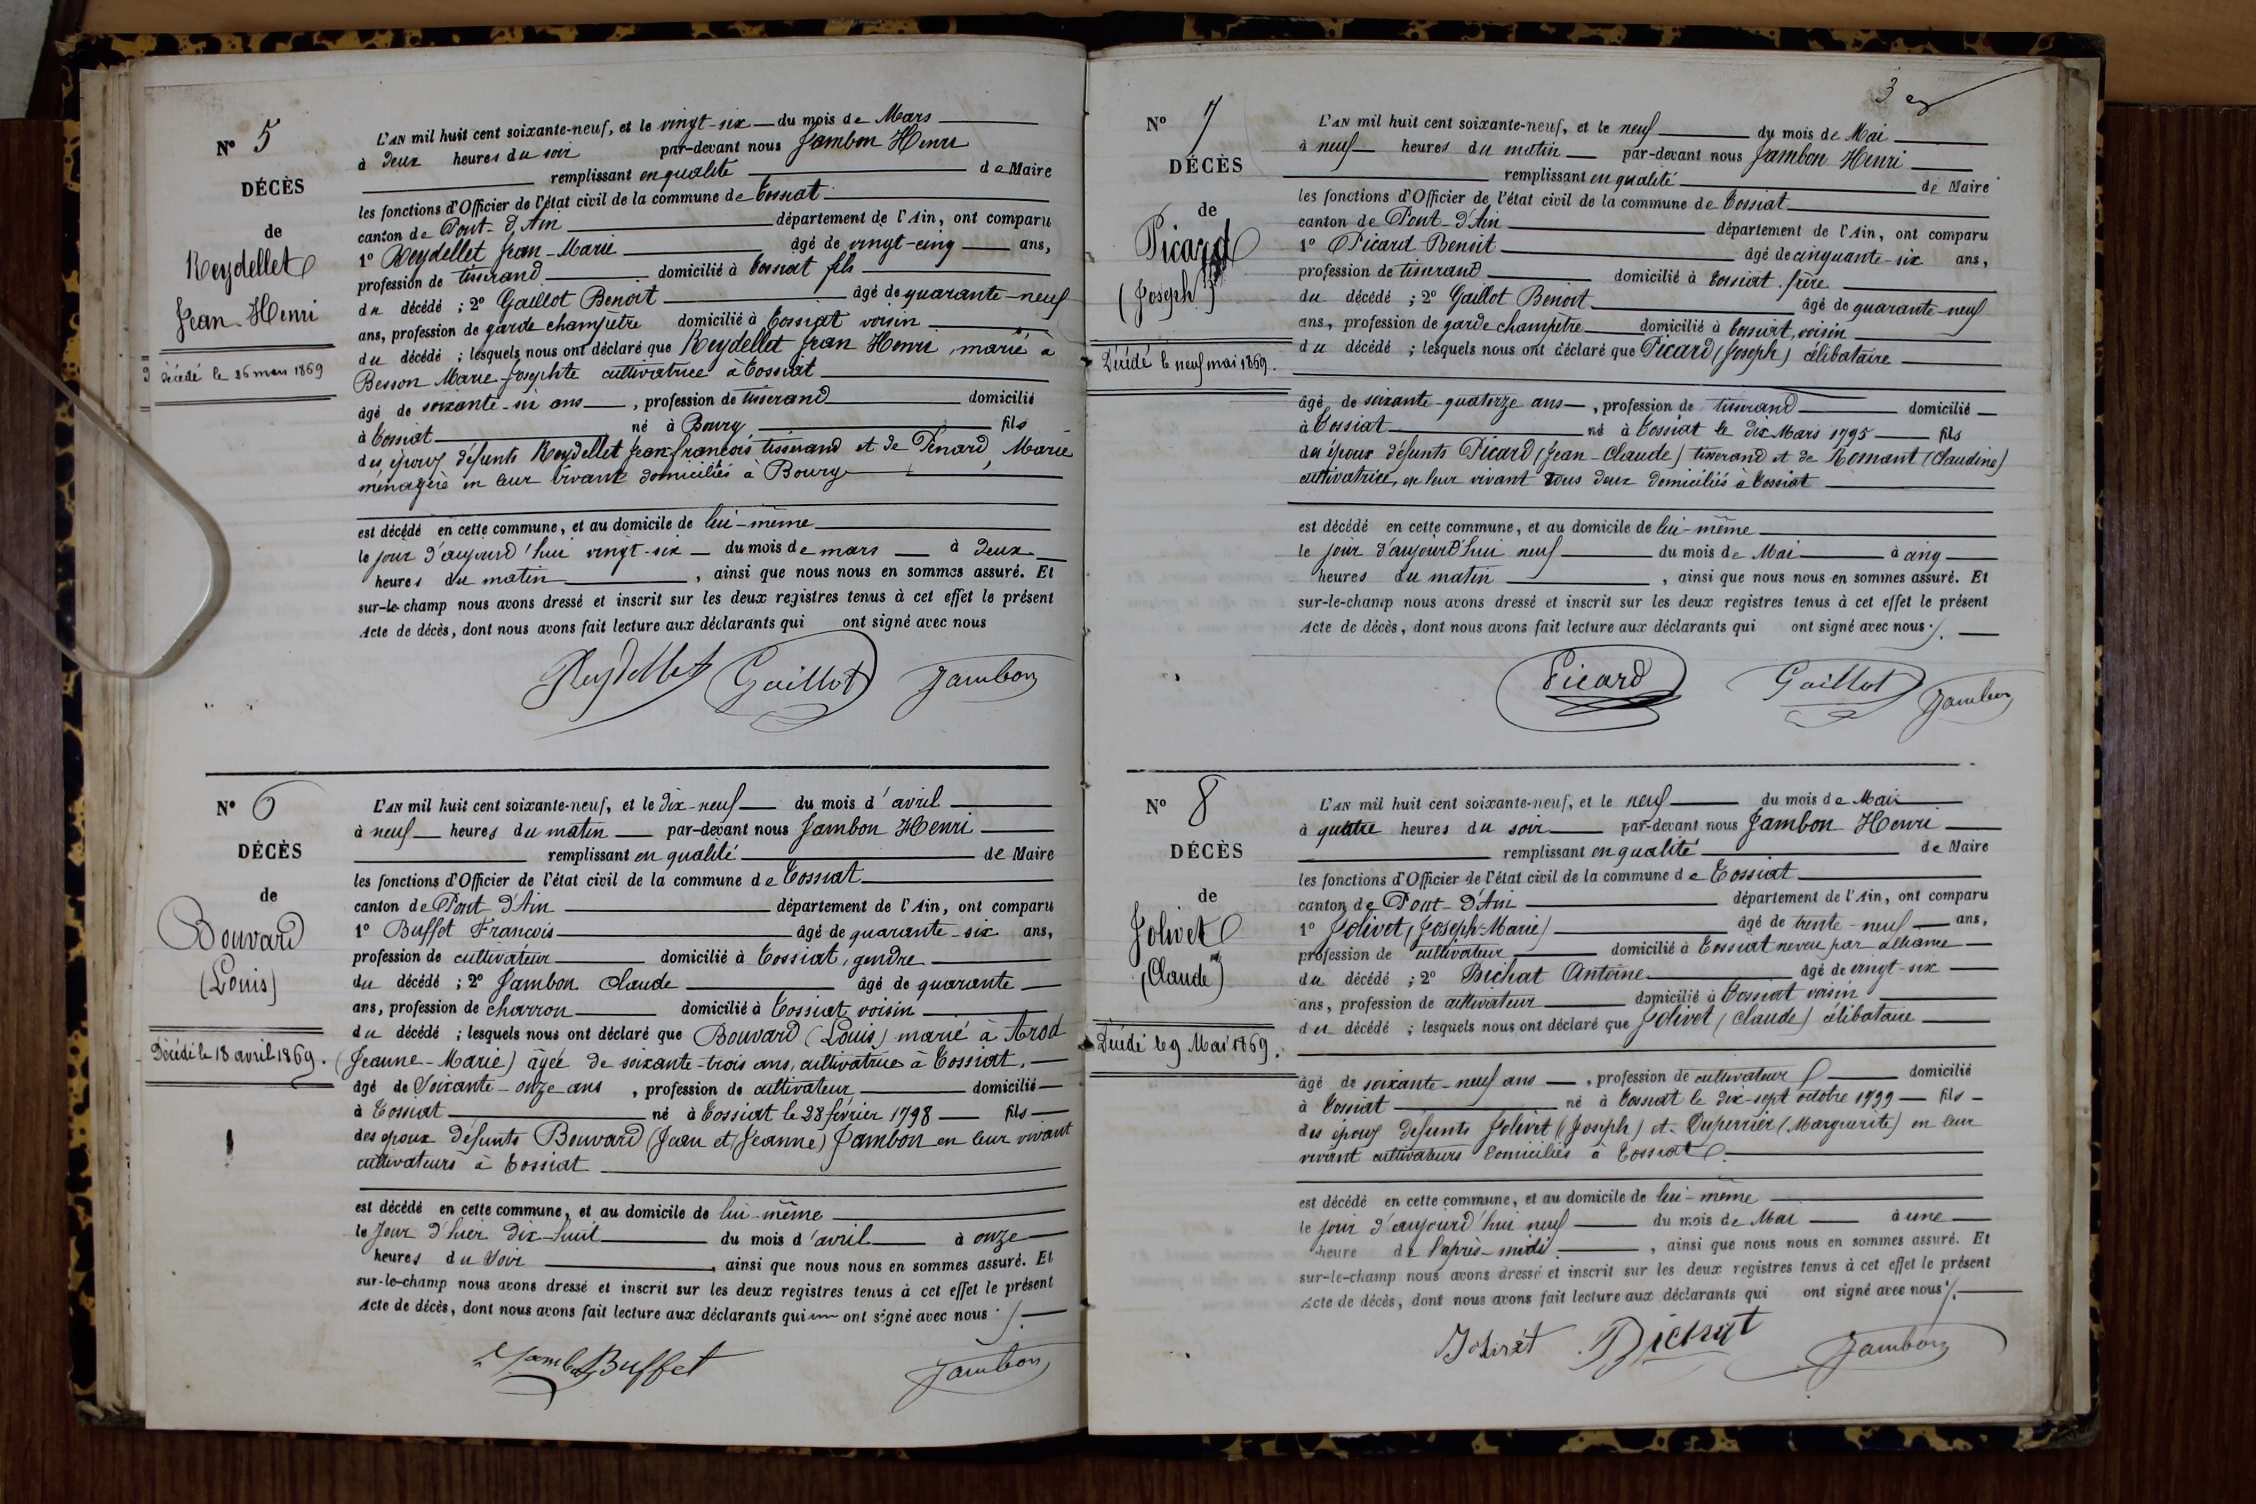 N° 5
DÉCÈS
de
Reydellet
Jean-Henri
Décédé le 26 mars 1869
L'AN mil huit cent soixante-neuf, et le vingt-six du mois de Mars
à deux heures du soir par-devant nous Jambon Henri
remplissant en qualité de Maire
les fonctions d'Officier de l'état civil de la commune de Tossiat
canton de Pont-d'Ain département de l'Ain, ont comparu
1° Reydellet Jean-Marie âgé de vingt-cinq ans,
profession de tisserand domicilié à Tossiat fils
du décédé ; 2° Gaillot Benoit âgé de quarante-neuf
ans, profession de garde champêtre domicilié à Tossiat voisin
du décédé ; lesquels nous ont déclaré que Reydellet Jean Henri, marié à
Besson Marie-Josephte cultivatrice à Tossiat
âgé de soixante-six ans, profession de tisserand domicilié
à Tossiat né à Bourg fils
des époux défunts Reydellet Jean-françois tisserand et de Penard, Marie
ménagère en leur vivant domiciliés à Bourg
est décédé en cette commune, et au domicile de lui-même
le jour d'aujourd'hui vingt-six du mois de mars à deux
heures du matin, ainsi que nous nous en sommes assuré. Et
sur-le-champ nous avons dressé et inscrit sur les deux registres tenus à cet effet le présent
Acte de décès, dont nous avons fait lecture aux déclarants qui ont signé avec nous
Reydellet Gaillot Jambon
N° 6
DÉCÈS
de
Bouvard
(Louis)
Décédé le 18 avril 1869.
L'AN mil huit cent soixante-neuf, et le dix-neuf du mois d'avril
à neuf heures du matin par-devant nous Jambon Henri
remplissant en qualité de Maire
les fonctions d'Officier de l'état civil de la commune de Tossiat
canton de Pont d'Ain département de l'Ain, ont comparu
1° Buffet François âgé de quarante-six ans,
profession de cultivateur domicilié à Tossiat, gendre
du décédé ; 2° Jambon Claude âgé de quarante
ans, profession de charron domicilié à Tossiat voisin
du décédé ; lesquels nous ont déclaré que Bouvard (Louis) marié à Arod
(Jeanne-Marie) âgée de soixante-trois ans, cultivatrice à Tossiat,
âgé de Soixante-onze ans, profession de cultivateur domicilié
à Tossiat né à Tossiat le 28 février 1798 fils
des époux défunts Bouvard (Jean et (Jeanne) Jambon en leur vivant
cultivateurs à Tossiat
est décédé en cette commune, et au domicile de lui-même
le Jour d'hier dix-huit du mois d'avril à onze
heures du Soir, ainsi que nous nous en sommes assuré. Et
sur-le-champ nous avons dressé et inscrit sur les deux registres tenus à cet effet le présent
Acte de décès, dont nous avons fait lecture aux déclarants qui ont signé avec nous ./.
Jambon Buffet Jambon
3
N° 7
DÉCÈS
de
Picard
(Joseph)
Décédé le neuf mai 1869.
L'AN mil huit cent soixante-neuf, et le neuf du mois de Mai
à neuf heures du matin par-devant nous Jambon Henri
remplissant en qualité de Maire
les fonctions d'Officier de l'état civil de la commune de Tossiat
canton de Pont-d'Ain département de l'Ain, ont comparu
1° Picard Benoit âgé de cinquante-six ans,
profession de tisserand domicilié à Tossiat frère
du décédé ; 2° Gaillot Benoit âgé de quarante-neuf
ans, profession de garde champêtre domicilié à Tossiat, voisin
du décédé ; lesquels nous ont déclaré que Picard (Joseph) célibataire
âgé de soixante-quatorze ans, profession de tisserand domicilié
à Tossiat né à Tossiat le dix Mars 1795 fils
des époux défunts Picard (Jean-Claude) tisserand et de Romant (Claudine)
cultivatrice, en leur vivant tous deux domiciliés à Tossiat
est décédé en cette commune, et au domicile de lui-même
le jour d'aujourd'hui neuf du mois de Mai à cinq
heures du matin, ainsi que nous nous en sommes assuré. Et
sur-le-champ nous avons dressé et inscrit sur les deux registres tenus à cet effet le présent
Acte de décès, dont nous avons fait lecture aux déclarants qui ont signé avec nous ./.
Picard Gaillot Jambon
N° 8
DÉCÈS
de
Jolivet
(Claude)
Décédé le 9 Mai 1869.
L'AN mil huit cent soixante-neuf, et le neuf du mois de Mai
à quatre heures du soir par-devant nous Jambon Henri
remplissant en qualité de Maire
les fonctions d'Officier de l'état civil de la commune de Tossiat
canton de Pont-d'Ain département de l'Ain, ont comparu
1° Jolivet (Joseph-Marie) âgé de trente-neuf ans,
profession de cultivateur domicilié à Tossiat neveu par alliance
du décédé ; 2° Bichat Antoine âgé de vingt-six
ans, profession de cultivateur domicilié à Tossiat voisin
du décédé ; lesquels nous ont déclaré que Jolivet (Claude) célibataire
âgé de soixante-neuf ans, profession de cultivateur domicilié
à Tossiat né à Tossiat le dix-sept octobre 1799 fils
des époux défunts Jolivet (Joseph) et Duperrier (Marguerite) en leur
vivant cultivateurs domiciliés à Tossiat.
est décédé en cette commune, et au domicile de lui-même
le jour d'aujourd'hui neuf du mois de Mai à une
heure de l'après-midi, ainsi que nous nous en sommes assuré. Et
sur-le-champ nous avons dressé et inscrit sur les deux registres tenus à cet effet le présent
Acte de décès, dont nous avons fait lecture aux déclarants qui ont signé avec nous ./.
Jolivet Bichat Jambon